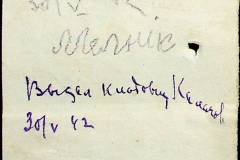 30/V 42
Мельник
Выдал кладовщ Калачов
30/V 42